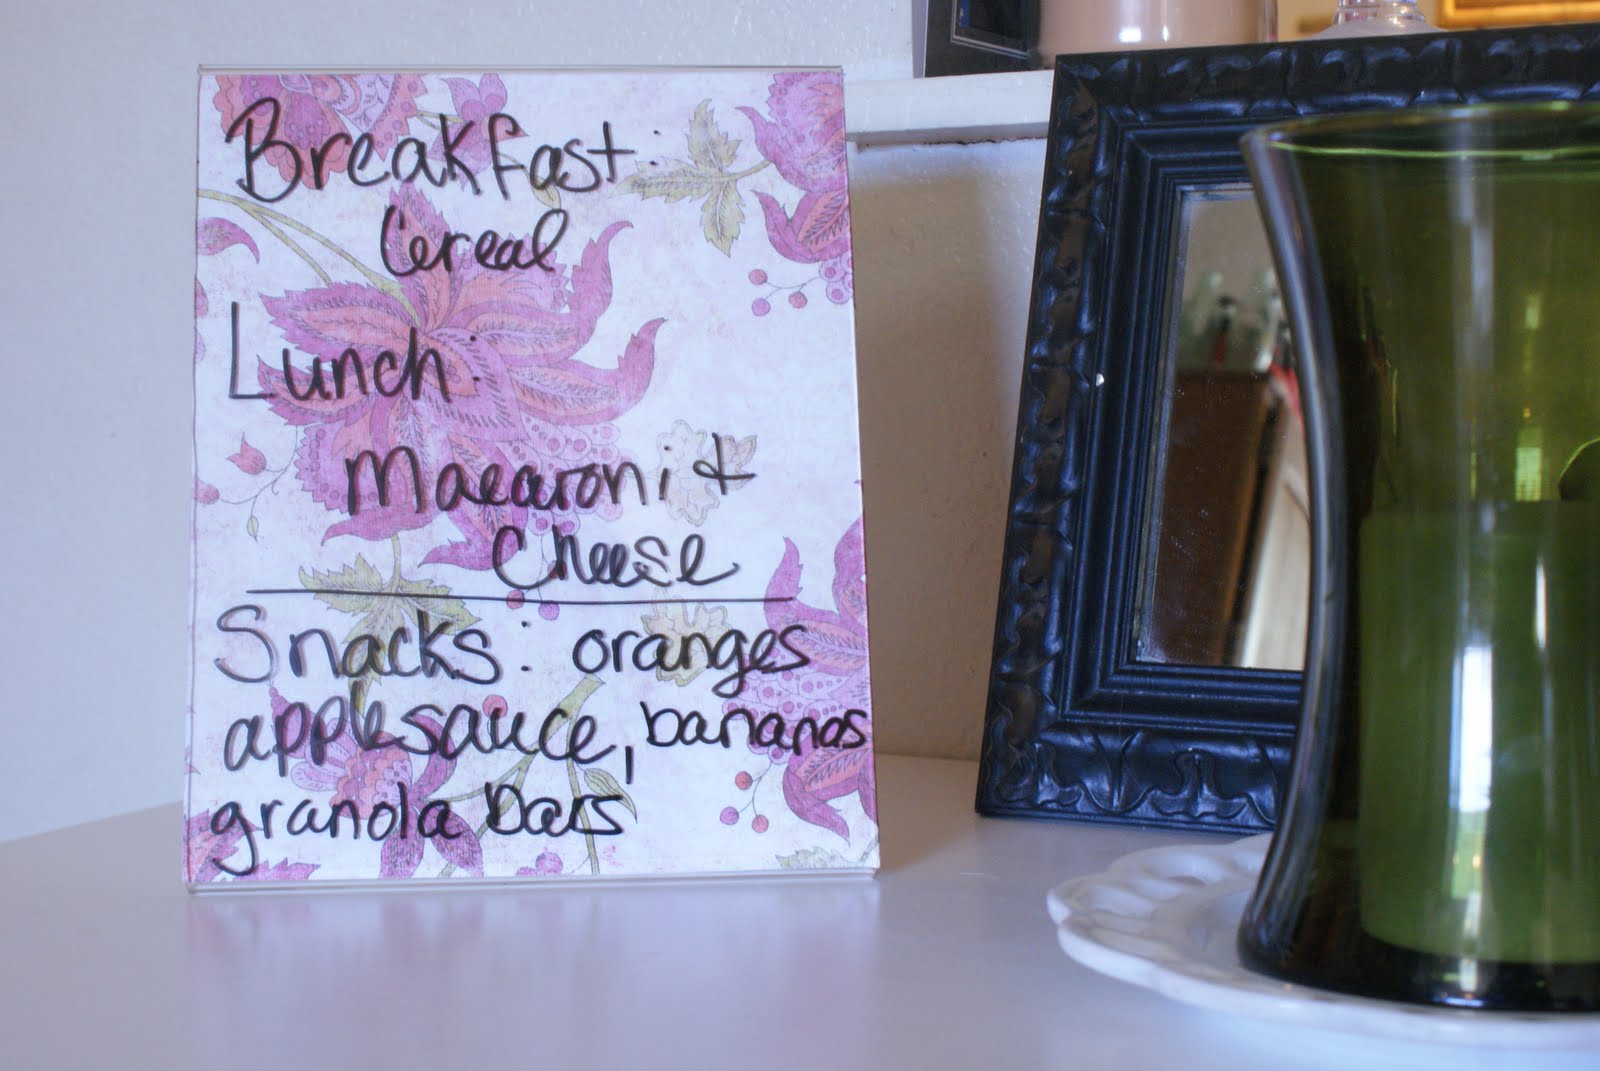 Breakfast:
Cereal
Lunch:
Macaroni &
Cheese
Snacks: oranges
applesauce, bananas
granola bars